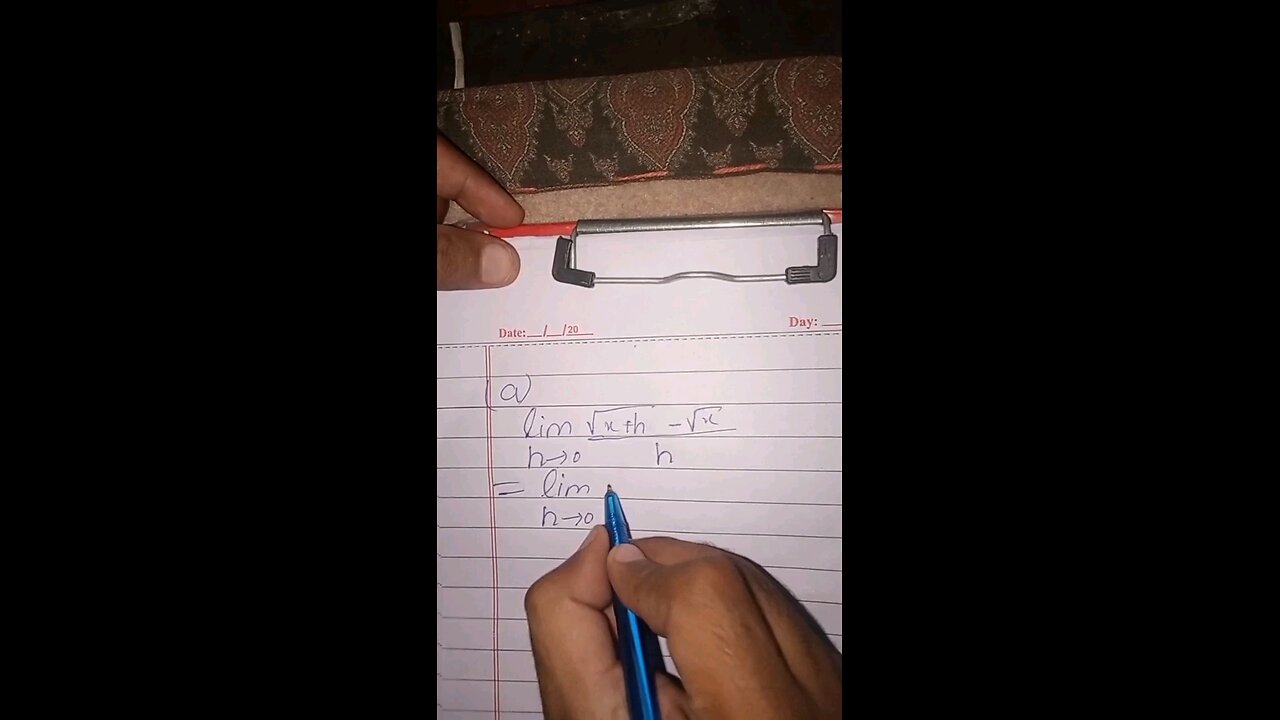 Date:__/__/20__ Day: __
(a)
lim √x+h - √x
h→0 h
= lim
h→0